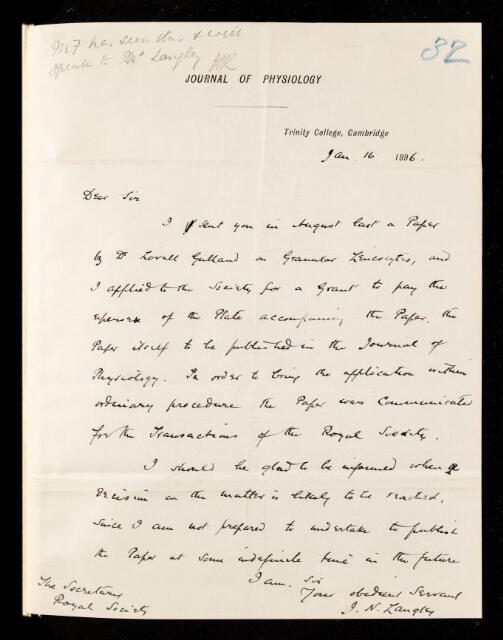 MF has seen this & will
speak to Mr Langley HR
32
JOURNAL OF PHYSIOLOGY
Trinity College, Cambridge
Jan. 16 1896.
Dear Sir
I sent you in August last a Paper
by Dr Lovell Gulland on Granular Leucocytes, and
I applied to the Society for a Grant to pay the
expenses of the Plate accompanying the Paper, the
Paper itself to be published in the Journal of
Physiology. In order to bring the application within
ordinary procedure the Paper was communicated
for the Transactions of the Royal Society.
I should be glad to be informed when a
decision on the matter is likely to be reached,
since I am not prepared to undertake to publish
the Paper at some indefinite time in the future
I am, Sir
Your obedient Servant
J. N. Langley
The Secretary
Royal Society